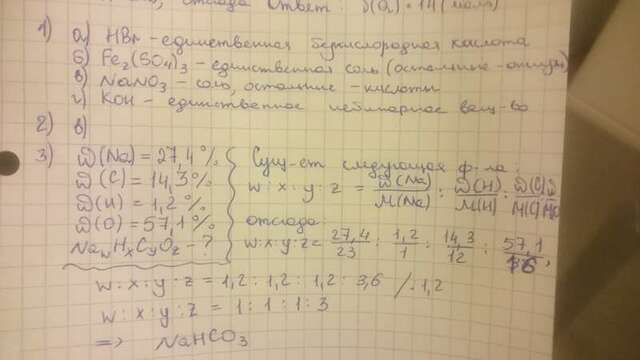 отсюда ответ: υ(O₂) = 14 (моль)
1) а) HBr - единственная бескислородная кислота
б) Fe₂(SO₄)₃ - единственная соль (остальные - оксиды)
в) NaNO₃ - соль, остальные - кислоты
г) KOH - единственное небинарное вещ-во
2) в)
3) ω(Na) = 27,4%
ω(C) = 14,3%
ω(H) = 1,2%
ω(O) = 57,1%
NawHxCyOz - ?
Сущ-ет следующая ф-ла:
w:x:y:z = ω(Na)/M(Na) : ω(H)/M(H) : ω(C)/M(C)
отсюда:
w:x:y:z = 27,4/23 : 1,2/1 : 14,3/12 : 57,1/16;
w:x:y:z = 1,2:1,2:1,2:3,6 /:1,2
w:x:y:z = 1:1:1:3
=> NaHCO₃